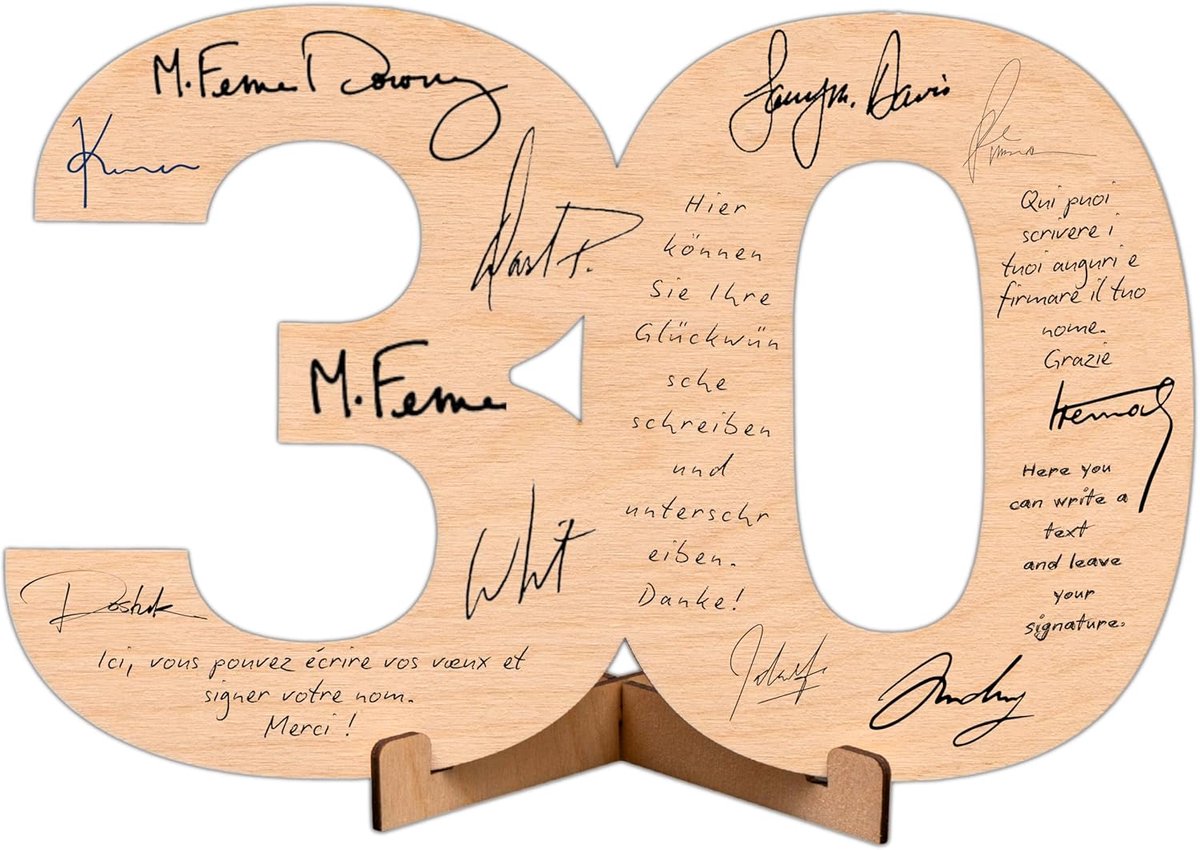 30
M. Feme Downy
M. Feme
Ici, vous pouvez écrire vos vœux et
signer votre nom.
Merci !
Davis
Hier
können
Sie Ihre
Glückwün
sche
schreiben
und
unterschr
eiben.
Danke!
Qui puoi
scrivere i
tuoi auguri e
firmare il tuo
nome.
Grazie
Here you
can write a
text
and leave
your
signature.